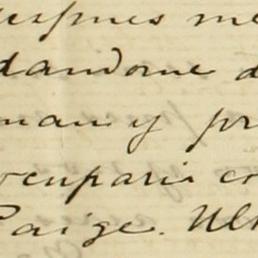 espues me
dandome d
man y pr
ocuparia co
Paige. Ult